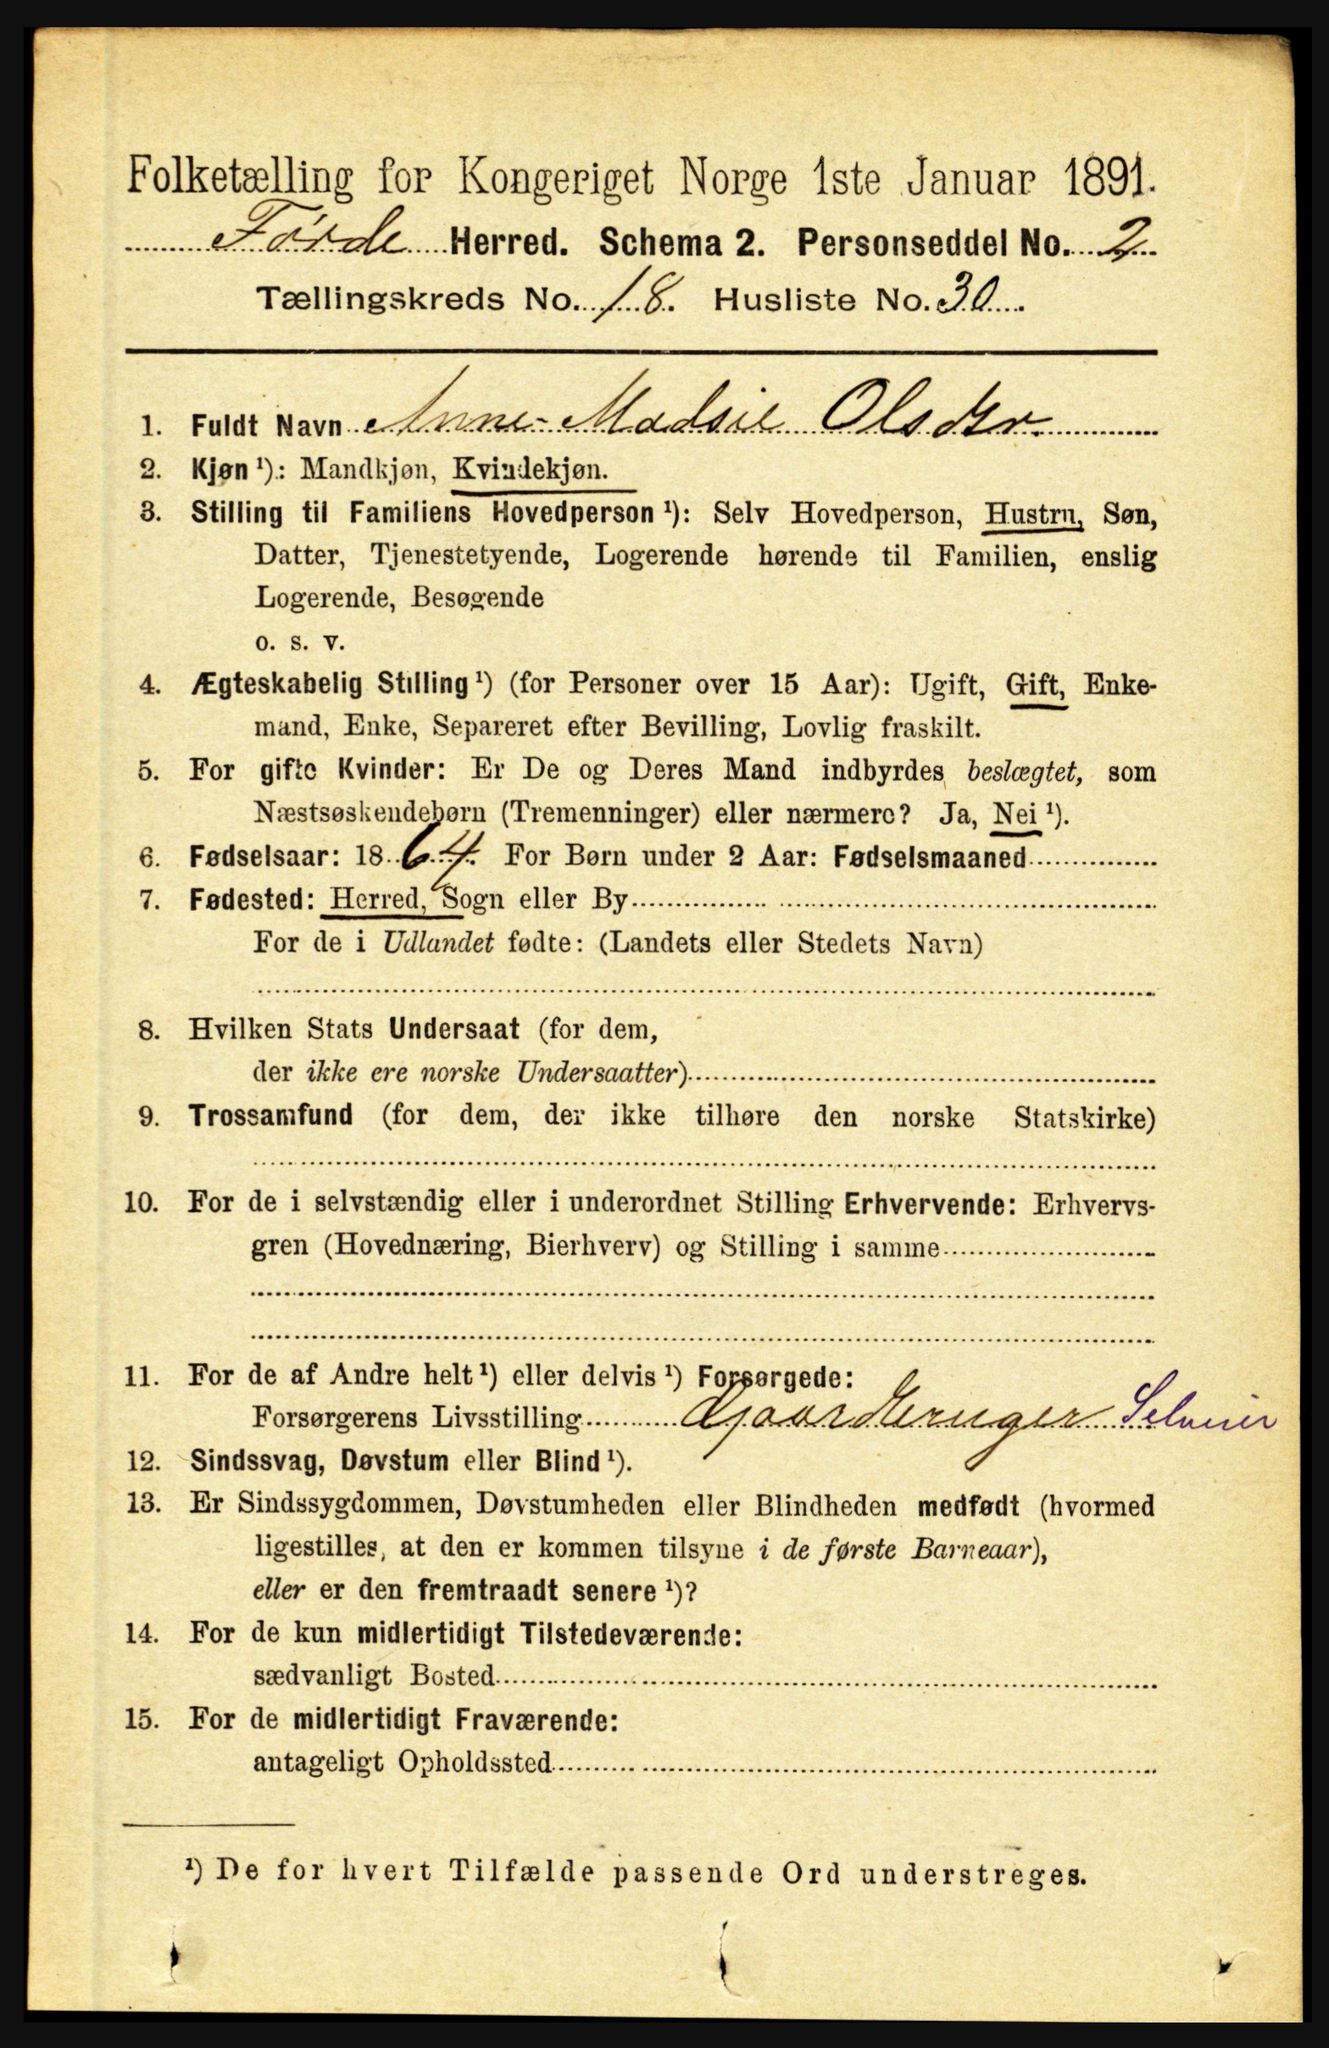 Folketælling for Kongeriget Norge 1ste Januar 1891.
Førde Herred. Schema 2. Personseddel No. 2
Tællingskreds No. 18. Husliste No. 30
1. Fuldt Navn Anne Madsie Olsdtr.
2. Kjøn ¹): Mandkjøn, Kvindekjøn.
3. Stilling til Familiens Hovedperson ¹): Selv Hovedperson, Hustru, Søn,
Datter, Tjenestetyende, Logerende hørende til Familien, enslig
Logerende, Besøgende
o. s. v.
4. Ægteskabelig Stilling ¹) (for Personer over 15 Aar): Ugift, Gift, Enke-
mand, Enke, Separeret efter Bevilling, Lovlig fraskilt.
5. For gifte Kvinder: Er De og Deres Mand indbyrdes beslægtet, som
Næstsøskendebørn (Tremenninger) eller nærmere? Ja, Nei ¹).
6. Fødselsaar: 1864. For Børn under 2 Aar: Fødselsmaaned
7. Fødested: Herred, Sogn eller By
For de i Udlandet fødte: (Landets eller Stedets Navn)
8. Hvilken Stats Undersaat (for dem,
der ikke ere norske Undersaatter)
9. Trossamfund (for dem, der ikke tilhøre den norske Statskirke)
10. For de i selvstændig eller i underordnet Stilling Erhvervende: Erhvervs-
gren (Hovednæring, Bierhverv) og Stilling i samme
11. For de af Andre helt ¹) eller delvis ¹) Forsørgede:
Forsørgerens Livsstilling Gaardbruger Selveier
12. Sindssvag, Døvstum eller Blind ¹).
13. Er Sindssygdommen, Døvstumheden eller Blindheden medfødt (hvormed
ligestilles, at den er kommen tilsyne i de første Barneaar),
eller er den fremtraadt senere ¹)?
14. For de kun midlertidigt Tilstedeværende:
sædvanligt Bosted
15. For de midlertidigt Fraværende:
antageligt Opholdssted
¹) De for hvert Tilfælde passende Ord understreges.